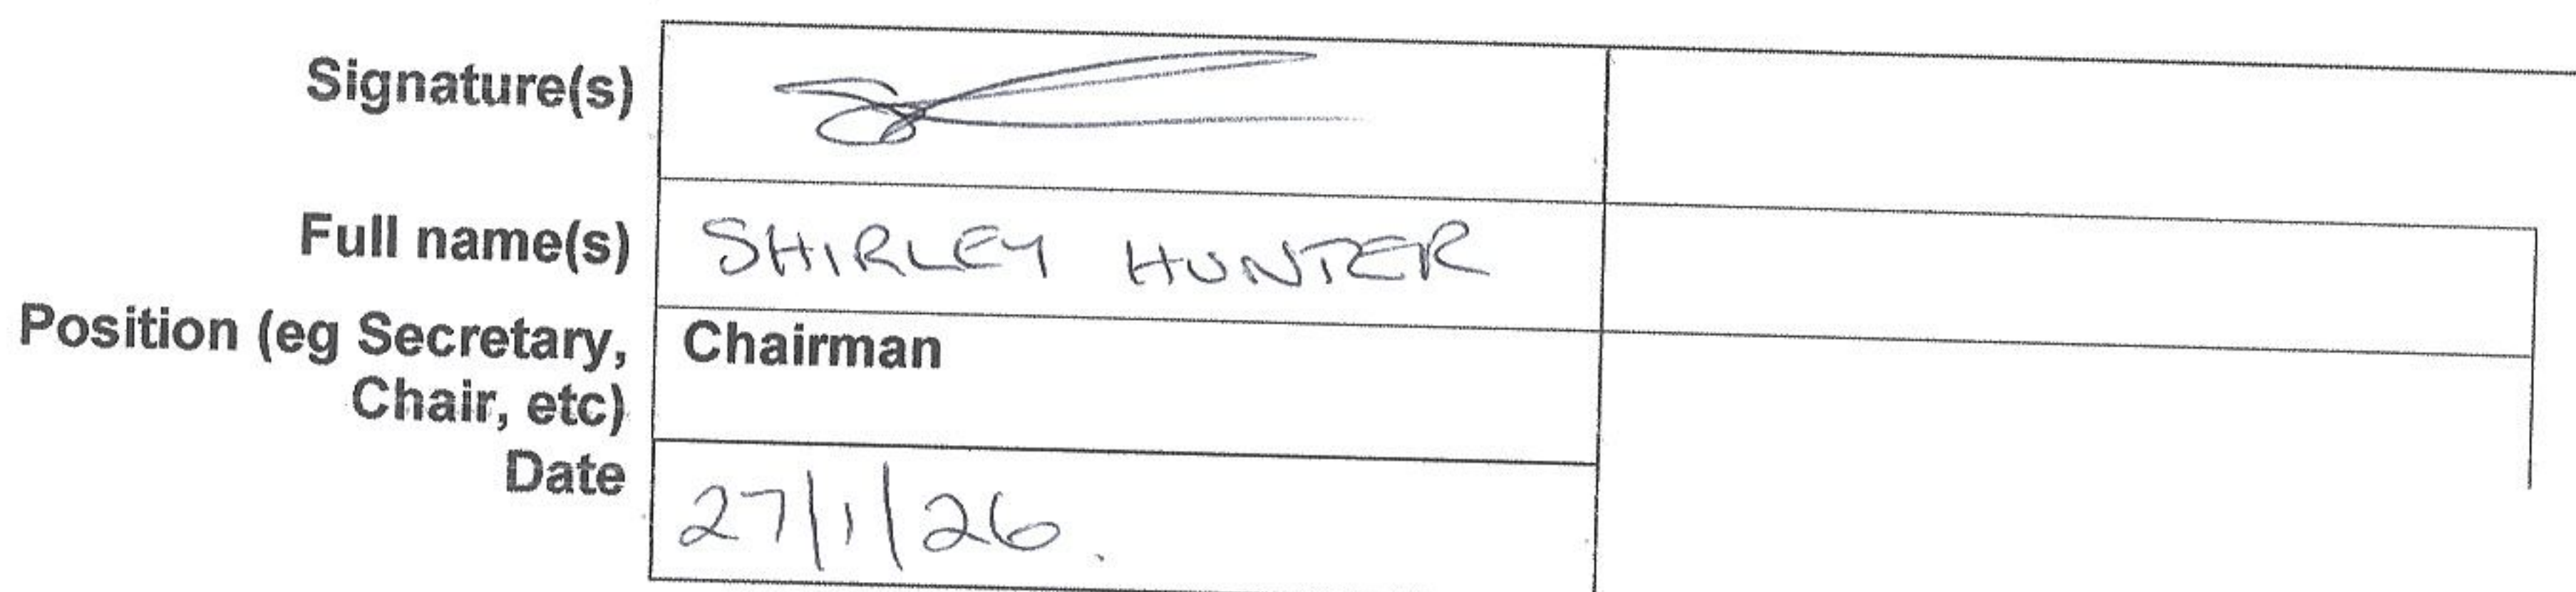 Signature(s)
Full name(s) SHIRLEY HUNTER
Position (eg Secretary, Chairman
Chair, etc)
Date 27/1/26.